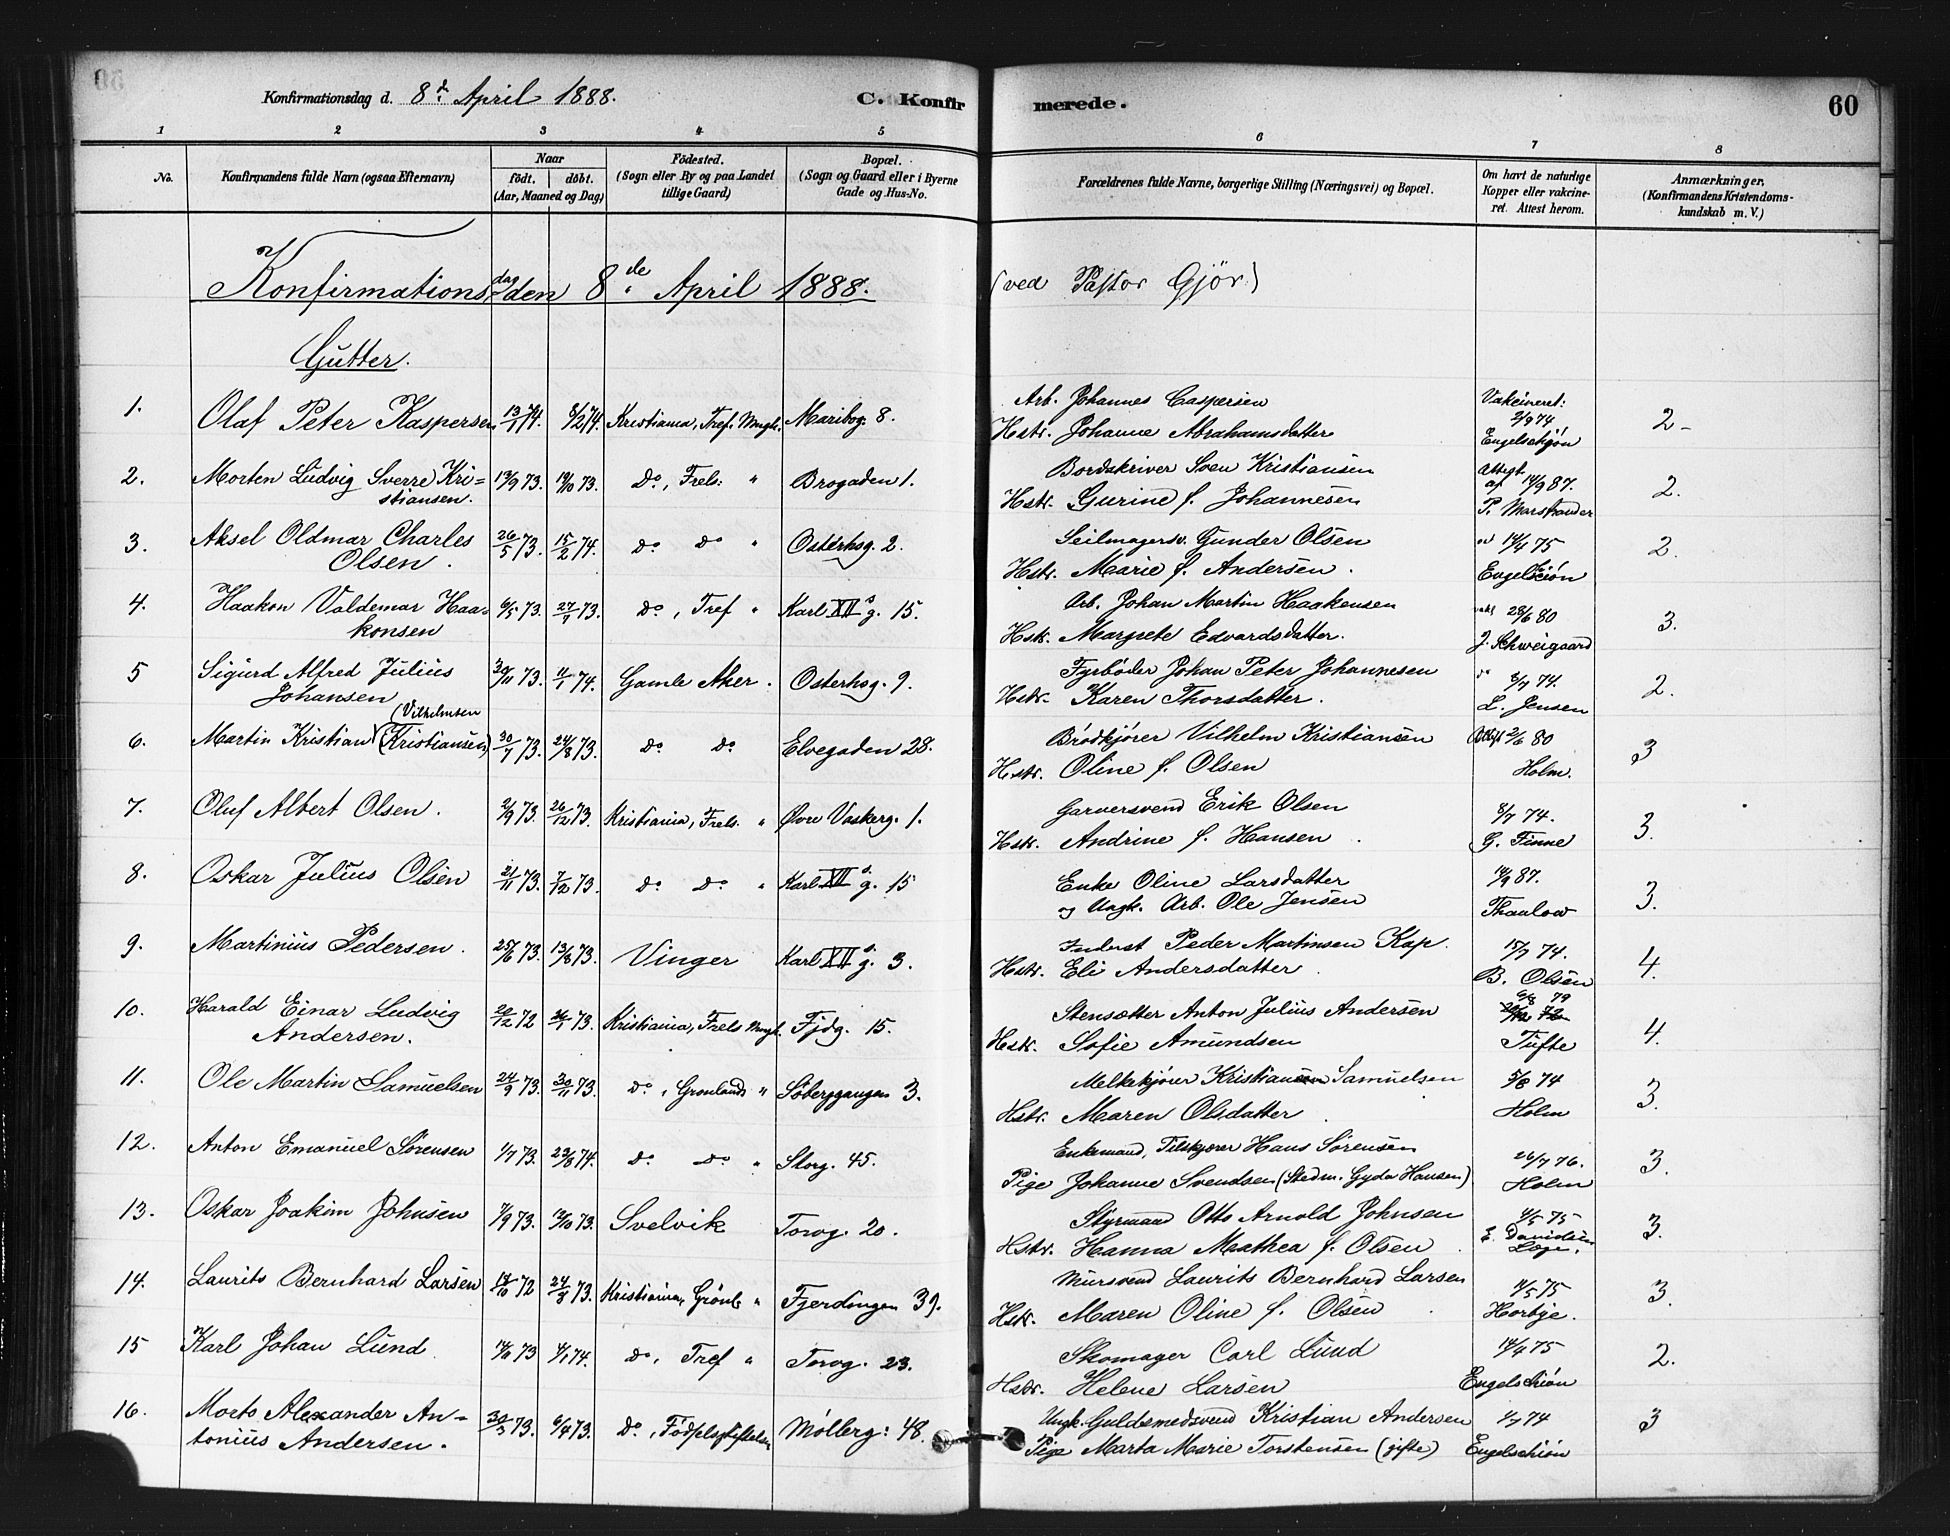 Konfirmationsdag d. 8d. April 1888. C. Konfirmerede. 60
1 2 3 4 5 6 7 8
No.
Konfirmandens fulde Navn (ogsaa Efternavn)
Naar
födt. döbt.
(Aar, Maaned og Dag)
Födested.
(Sogn eller By og paa Landet
tillige Gaard)
Bopæl.
(Sogn og Gaard eller i Byerne
Gade og Hus-No.
Forældrenes fulde Navne, borgerlige Stilling (Næringsvei) og Bopæl.
Om havt de naturlige
Kopper eller vakcine-
ret. Attest herom.
Anmærkninger,
(Konfirmandens Kristendoms-
kundskab m. V.)
Konfirmationsdag den 8de April 1888. (ved Pastor Gjör)
Gutter.
1. Olaf Peter Kaspersen 13/1 74. 8/2 74. Kristiania, Tref. Mngh. Maribog. 8. Arb. Johannes Caspersen Vakcineret: 2/9 74 2-
Hstr. Johanne Abrahamsdatter Engelschjøn
2. Morten Ludvig Sverre Kri= 13/9 73. 19/10 73. Do, Frels: " Brogaden 1. Bordskriver Sven Kristiansen Attest af 14/9 87. 2.
stiansen. Hstr. Gurine f. Johannesen P. Marstrander
3. Aksel Oldmar Charles 26/5 73. 15/2 74. Do Do " Osterhsg. 2. Seilmagersv. Gunder Olsen 14/4 75 2.
Olsen. Hstr. Marie f. Andersen. Engelschiøn
4. Haakon Valdemar Haa- 6/5 73. 27/7 73. Do, Tref " Karl XIIs g. 15. Arb. Johan Martin Haakensen 28/6 80 3.
konsen Hstr. Margrete Edvardsdatter. J. Schweigaard
5 Sigurd Alfred Julius 30/11 73. 11/1 74. Gamle Aker. Osterhsg. 9. Fyrbøder Johan Peter Johannesen 6/7 74. 2.
Johansen Hstr. Karen Thorsdatter. L. Jensen
(Vilhelmsen
6. Martin Kristian (Kristiansen) 30/7 73. 24/8 73. Do Do Elvegaden 28. Brödkjörer Vilhelm Kristiansen Attest 2/6 80 3
Hstr. Oline f. Olsen Holm.
7. Oluf Albert Olsen. 2/9 73. 26/12 73. Kristiania, Frels. " Øvre Vaskerg. 1. Garversvend Erik Olsen 8/7 74. 3.
Hstr. Andrine f. Hansen. G. Finne
8. Oskar Julius Olsen 21/11 73. 7/12 73. Do Do " Karl XIIs g. 15 Enke Oline Larsdatter 19/9 87. 3.
og Ungk. Arb. Ole Jensen Thaulow
9. Martinius Pedersen. 25/6 73. 13/8 73. Vinger Karl XIIs g. 3. Inderst Peder Martinsen Kap. 15/7 74. 4.
Hstr. Eli Andersdatter. B. Olsen
10. Harald Einar Ludvig 20/12 72 26/1 73. Kristiania, Frels Mngh. Fjdg. 15. Stensætter Anton Julius Andersen 79 4.
Andersen. Hstr. Sofie Amundsen Tufte
11. Ole Martin Samuelsen 24/9 73. 30/11 73. Do, Gronlands " Söberggangen 3. Melkekjörer Kristian Samuelsen 5/8 74 3.
Hstr. Maren Olsdatter. Holm
12. Anton Emanuel Sörensen 1/7 73. 23/8 74. Do Do " Storg. 45. Enkemand, Tilskjærer Hans Sørensen 26/7 76. 3.
Pige Johanne Svendsen (Stedm. Gyda Hansen) Holm
13. Oskar Joakim Johnsen 7/9 73. 12/10 73. Svelvik Torvg. 20. Styrmand Otto Arnold Johnsen 4/5 75 3.
Hstr. Hanna Mathea f. Olsen. E. Davidsen Læge.
14. Laurits Bernhard Larsen 18/10 72 24/3 73. Kristiania, Grönl. " Fjerdingen 39. Mursvend Laurits Bernhard Larsen 11/5 75 3.
Hstr. Maren Oline f. Olsen. Horbye.
15 Karl Johan Lund 73 4/1 74. Do, Tref " Torvg. 23. Skomager Carl Lund 14/4 75 2.
Hstr. Helene Larsen Engelschiøn
16. Morts Alexander An- 30/3 73. 6/4 73. Do, Födselsstiftelsen Mollerg: 48. Ungk. Guldsmedsvend Kristian Andersen 1/7 74 3
tonius Andersen. Pige Marta Marie Torstensen (gifte) Engelschiøn